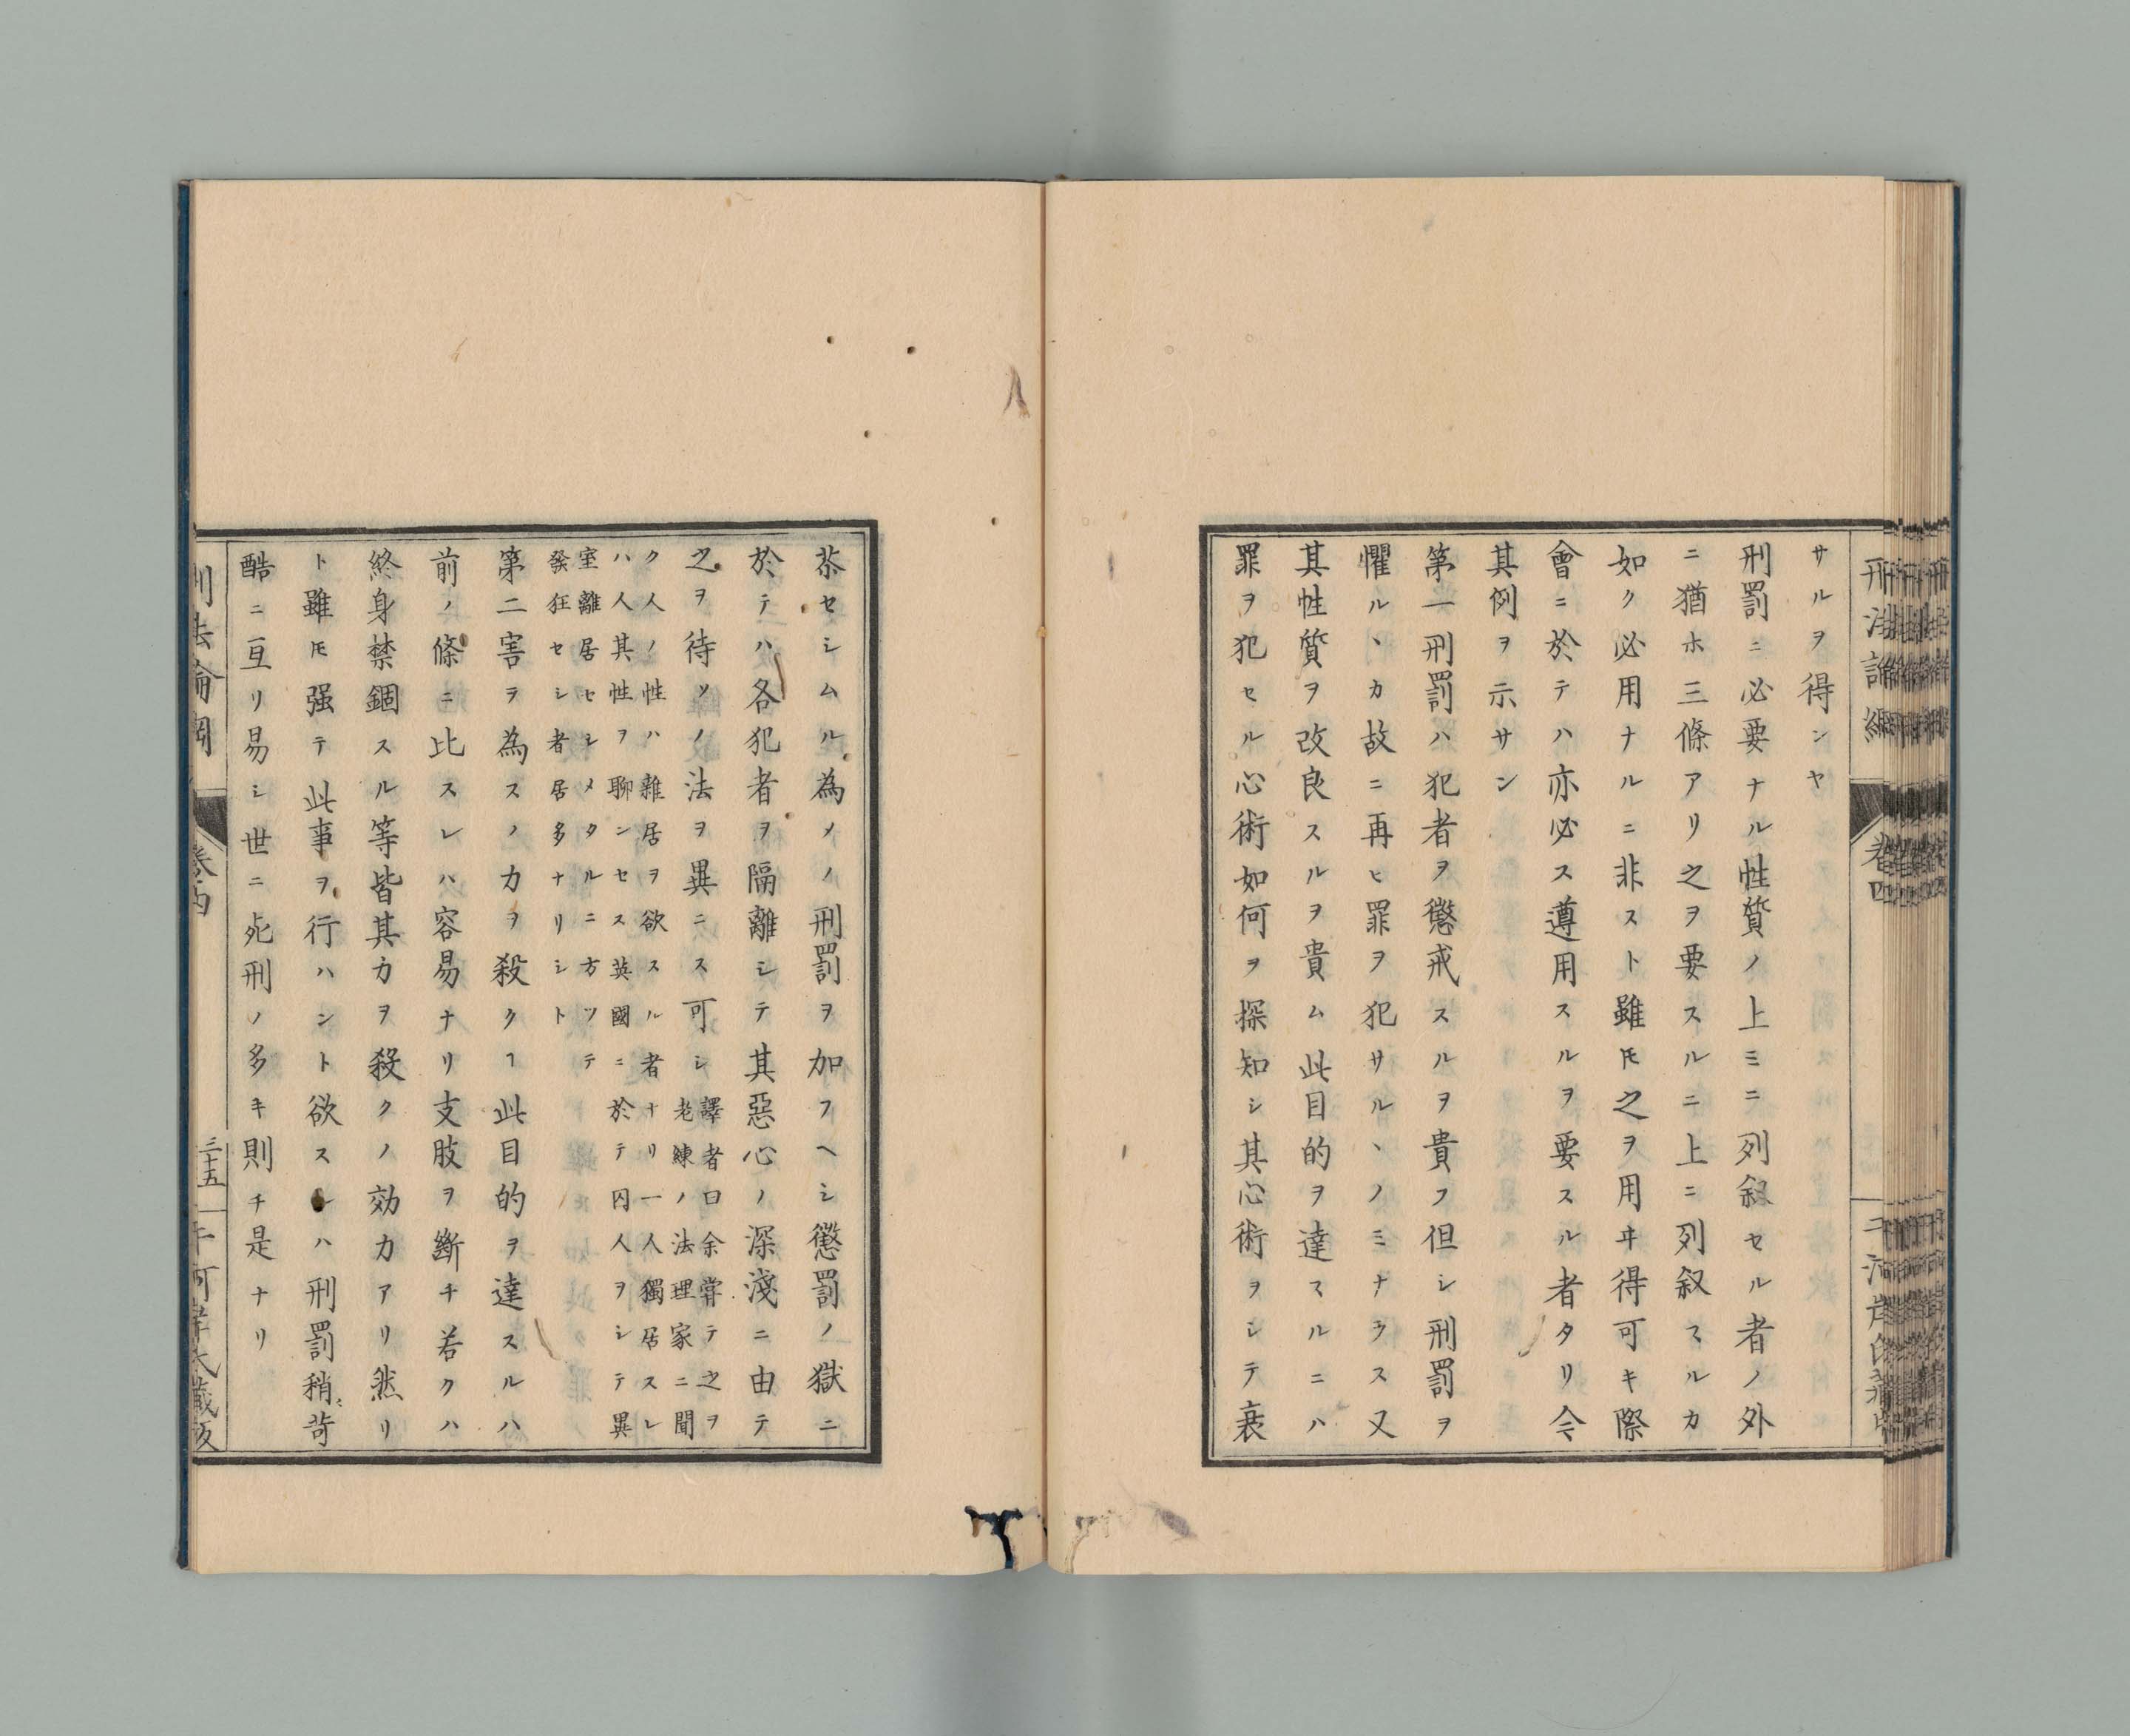 サルヲ得ンヤ
刑罰ニ必要ナル性質ノ上ミニ列叙セル者ノ外
ニ猶ホ三條アリ之ヲ要スルニ上ニ列叙スルカ
如ク必用ナルニ非スト雖𪜈之ヲ用ヰ得可キ際
會ニ於テハ亦必ス遵用スルヲ要スル者タリ今
其例ヲ示サン
第一刑罰ハ犯者ヲ懲戒スルヲ貴フ但シ刑罰ヲ
懼ルヽカ故ニ再ヒ罪ヲ犯サルヽノミナラス又
其性質ヲ改良スルヲ貴ム此目的ヲ達スルニハ
罪ヲ犯セル心術如何ヲ探知シ其心術ヲシテ衰
苶セシムル為メノ刑罰ヲ加フヘシ懲罰ノ獄ニ
於テハ各犯者ヲ隔離シテ其惡心ノ深淺ニ由テ
之ヲ待ツノ法ヲ異ニス可シ
譯者曰余甞テ之ヲ
老練ノ法理家ニ聞
ク人ノ性ハ雜居ヲ欲スル者ナリ一人獨居スレ
ハ人其性ヲ聊ンセス英國ニ於テ囚人ヲシテ異
室離居セシメタルニ方ツテ
發狂セシ者居多ナリシト
第二害ヲ為スノカヲ殺クヿ此目的ヲ達スルハ
前ノ條ニ比スレハ容易ナリ支肢ヲ斷チ若クハ
終身禁錮スル等皆其力ヲ殺クノ効力アリ然リ
ト雖𪜈强テ此事ヲ行ハント欲スレハ刑罰稍苛
酷ニ亙リ易シ世ニ死刑ノ多キ則チ是ナリ
刑法論綱
卷四
三十五